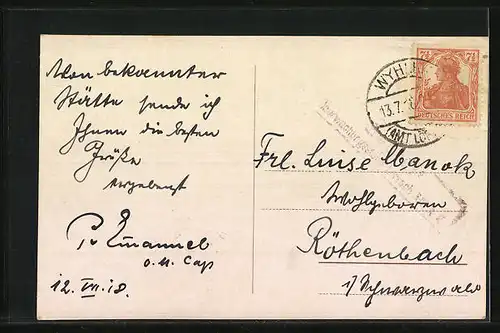 Von bekannter
Stätte sende ich
Ihnen die besten
Grüße
ergebenst
Emannel
12. VII. 18.
7½ 7½
DEUTSCHES REICH
WYHL
13.7.18
(AMT
Frl. Luise Manok
Wohlgeboren
Röthenbach
i/ Schwarzwald